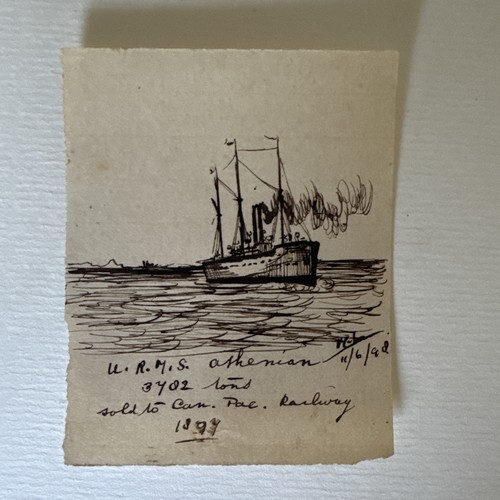 U. R. M. S. Athenian
11/6/98
3782 tons
sold to Can. Pac. Railway
1897